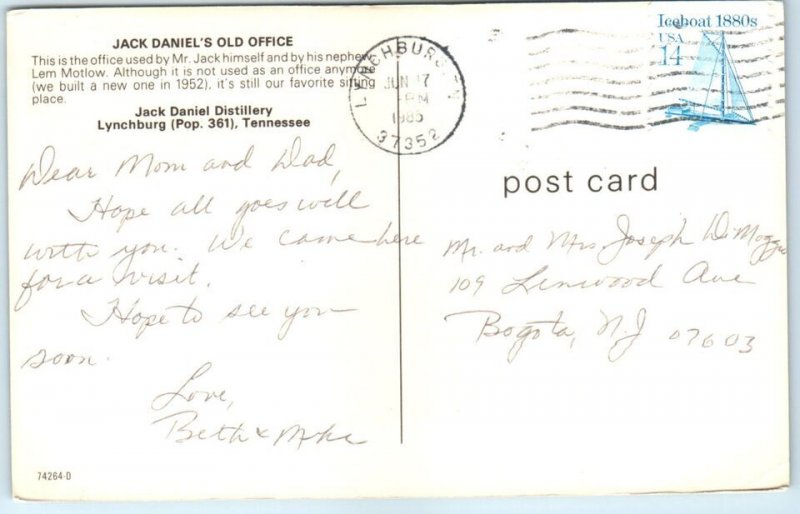 JACK DANIEL'S OLD OFFICE
This is the office used by Mr. Jack himself and by his nephew
Lem Motlow. Although it is not used as an office anymore
(we built a new one in 1952), it's still our favorite sitting
place.
Jack Daniel Distillery
Lynchburg (Pop. 361), Tennessee
LYNCHBURG, TN
JUN 17
PM
1985
37352
Iceboat 1880s
USA
14
post card
Dear Mom and Dad,
Hope all goes well
with you. We came here
for a visit.
Hope to see you
soon.
Love,
Beth & Mike
Mr. and Mrs Joseph DiMaggio
109 Linwood Ave
Bogota, NJ 07603
74264-D